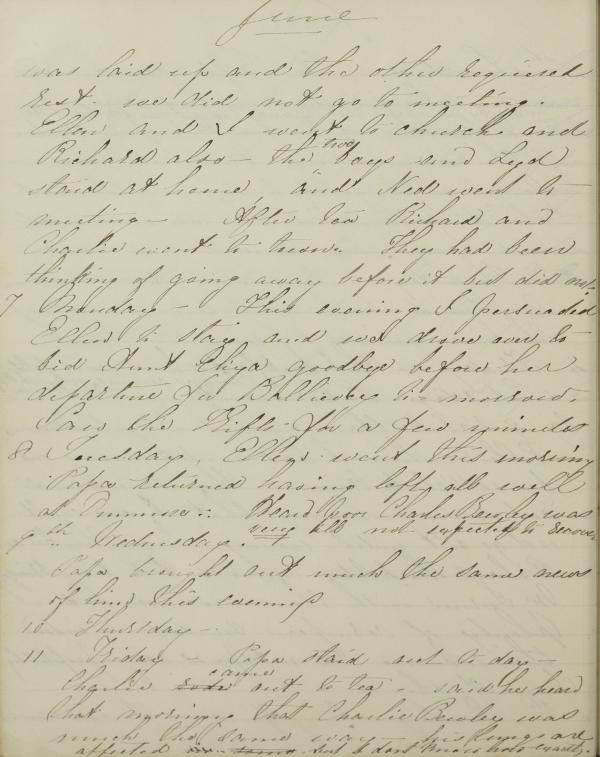 June
was laid up and the other required
rest. we did not go to meeting.
Ellen and I went to church and
Richard also - the two boys and Lyd
staid at home and Ned went to
meeting - After tea Richard and
Charlie went to town. They had been
thinking of going away before it but did not
7 Monday - This evening I persuaded
Ellen to stay and we drove over to
bid Aunt Eliza goodbye before her
departure for to morrow.
Saw the for a few minutes
8 Tuesday. Ellen went this morning
Papa returned having left all well
at Dunmore. Heard Poor Charles Bewley was
9th Wednesday. very ill not expected to recover
Papa brought out much the same news
of him this evening
10 Thursday -
11 Friday - Papa staid out to day -
Charlie came out to tea - said he heard
that morning that Charlie Bewley was
much the same way - his lungs are
affected but I dont know how exactly.